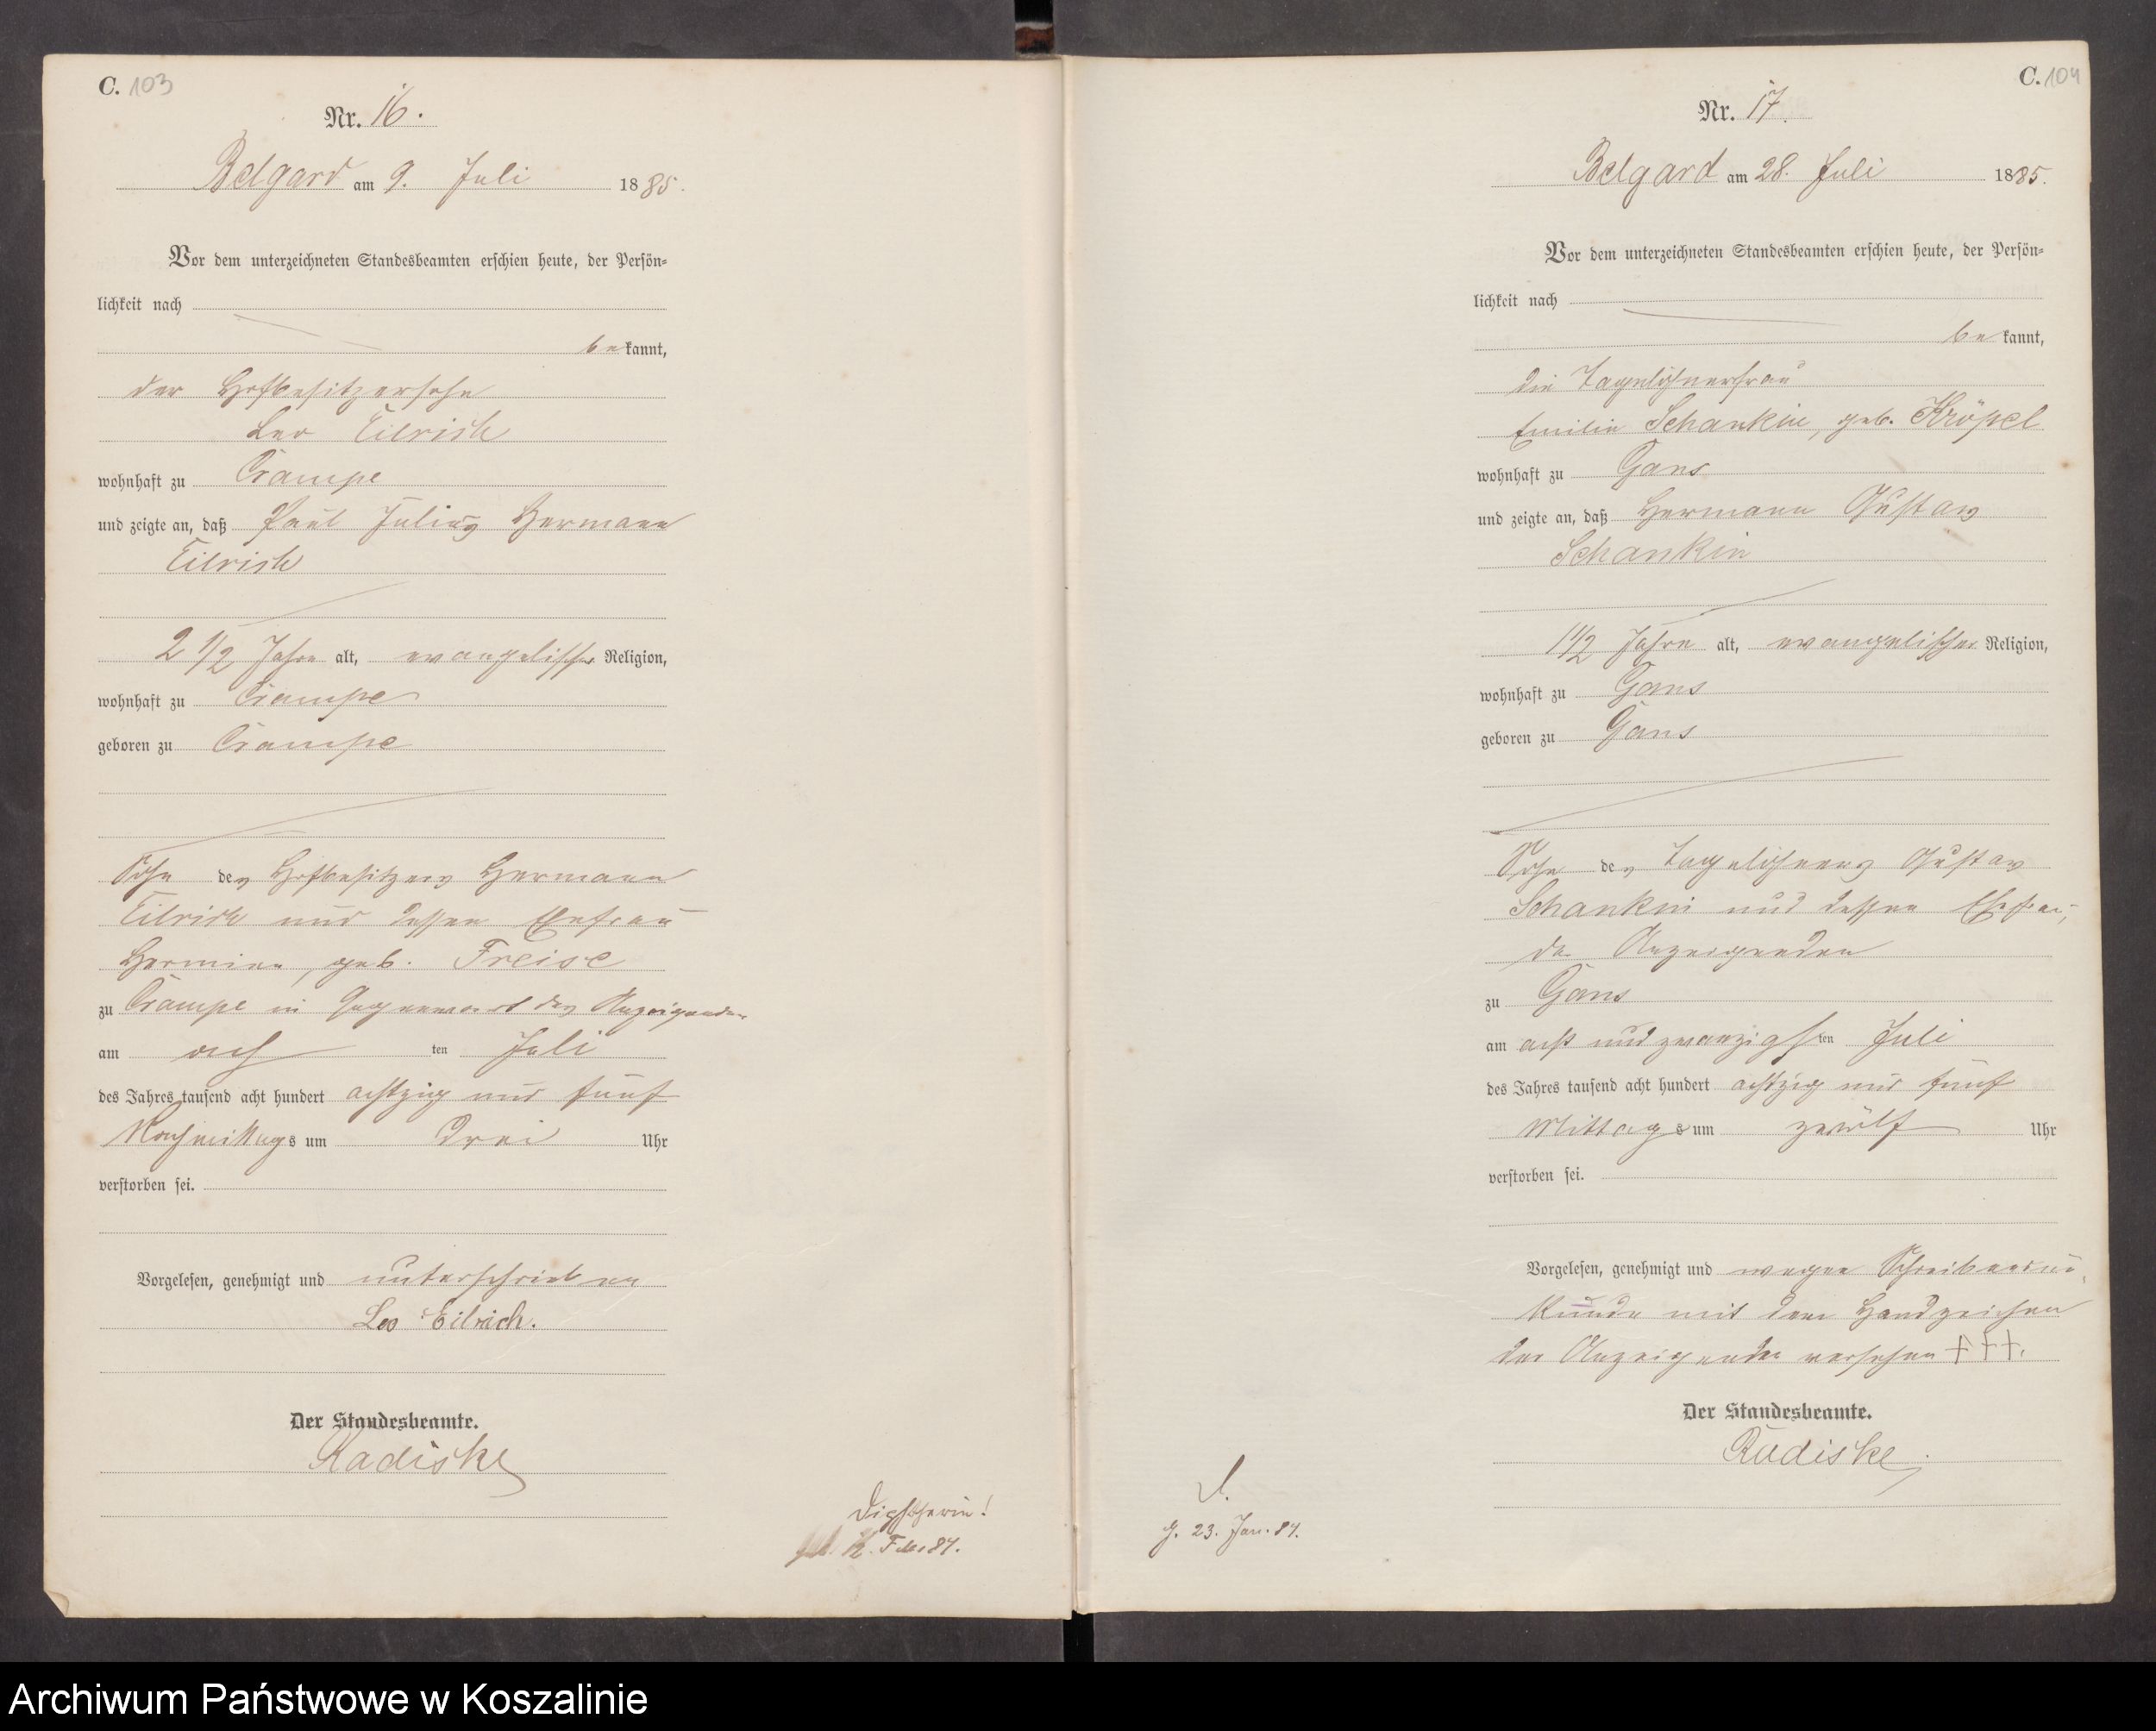 C. 103
Nr. 16.
Belgard am 9. Juli 1885.
Vor dem unterzeichneten Standesbeamten erschien heute, der Persön-
lichkeit nach
bekannt,
der Hofbesitzersohn
Leo Eilrich
wohnhaft zu Crampe
und zeigte an, daß Paul Julius Hermann
Eilrich
2 1/2 Jahre alt, evangelischer Religion,
wohnhaft zu Crampe
geboren zu Crampe
Sohn des Hofbesitzers Hermann
Eilrich und dessen Ehefrau
Hermine, geb. Freise
zu Crampe in Gegenwart des Anzeigenden
am ach ten Juli
des Jahres tausend acht hundert achtzig und fünf
Nachmittags um drei Uhr
verstorben sei.
Vorgelesen, genehmigt und unterschrieben
Leo Eilrich.
Der Standesbeamte.
Radiske
12. Feb. 84.
C. 104
Nr. 17.
Belgard am 28. Juli 1885.
Vor dem unterzeichneten Standesbeamten erschien heute, der Persön-
lichkeit nach
bekannt,
die Tagelöhnerfrau
Emilie Schankin, geb. Kröpel
wohnhaft zu Gans
und zeigte an, daß Hermann Gustav
Schankin
1 1/2 Jahre alt, evangelischer Religion,
wohnhaft zu Gans
geboren zu Gans
Sohn des Tagelöhners Gustav
Schankin und dessen Ehefrau,
der Anzeigenden
zu Gans
am acht und zwanzigsten Juli
des Jahres tausend acht hundert achtzig und fünf
Mittags um zwölf Uhr
verstorben sei.
Vorgelesen, genehmigt und wegen Schreibensun-
kunde mit dem Handzeichen
der Anzeigenden versehen +++.
Der Standesbeamte.
Radiske
g. 23. Jan. 84.
Archiwum Państwowe w Koszalinie